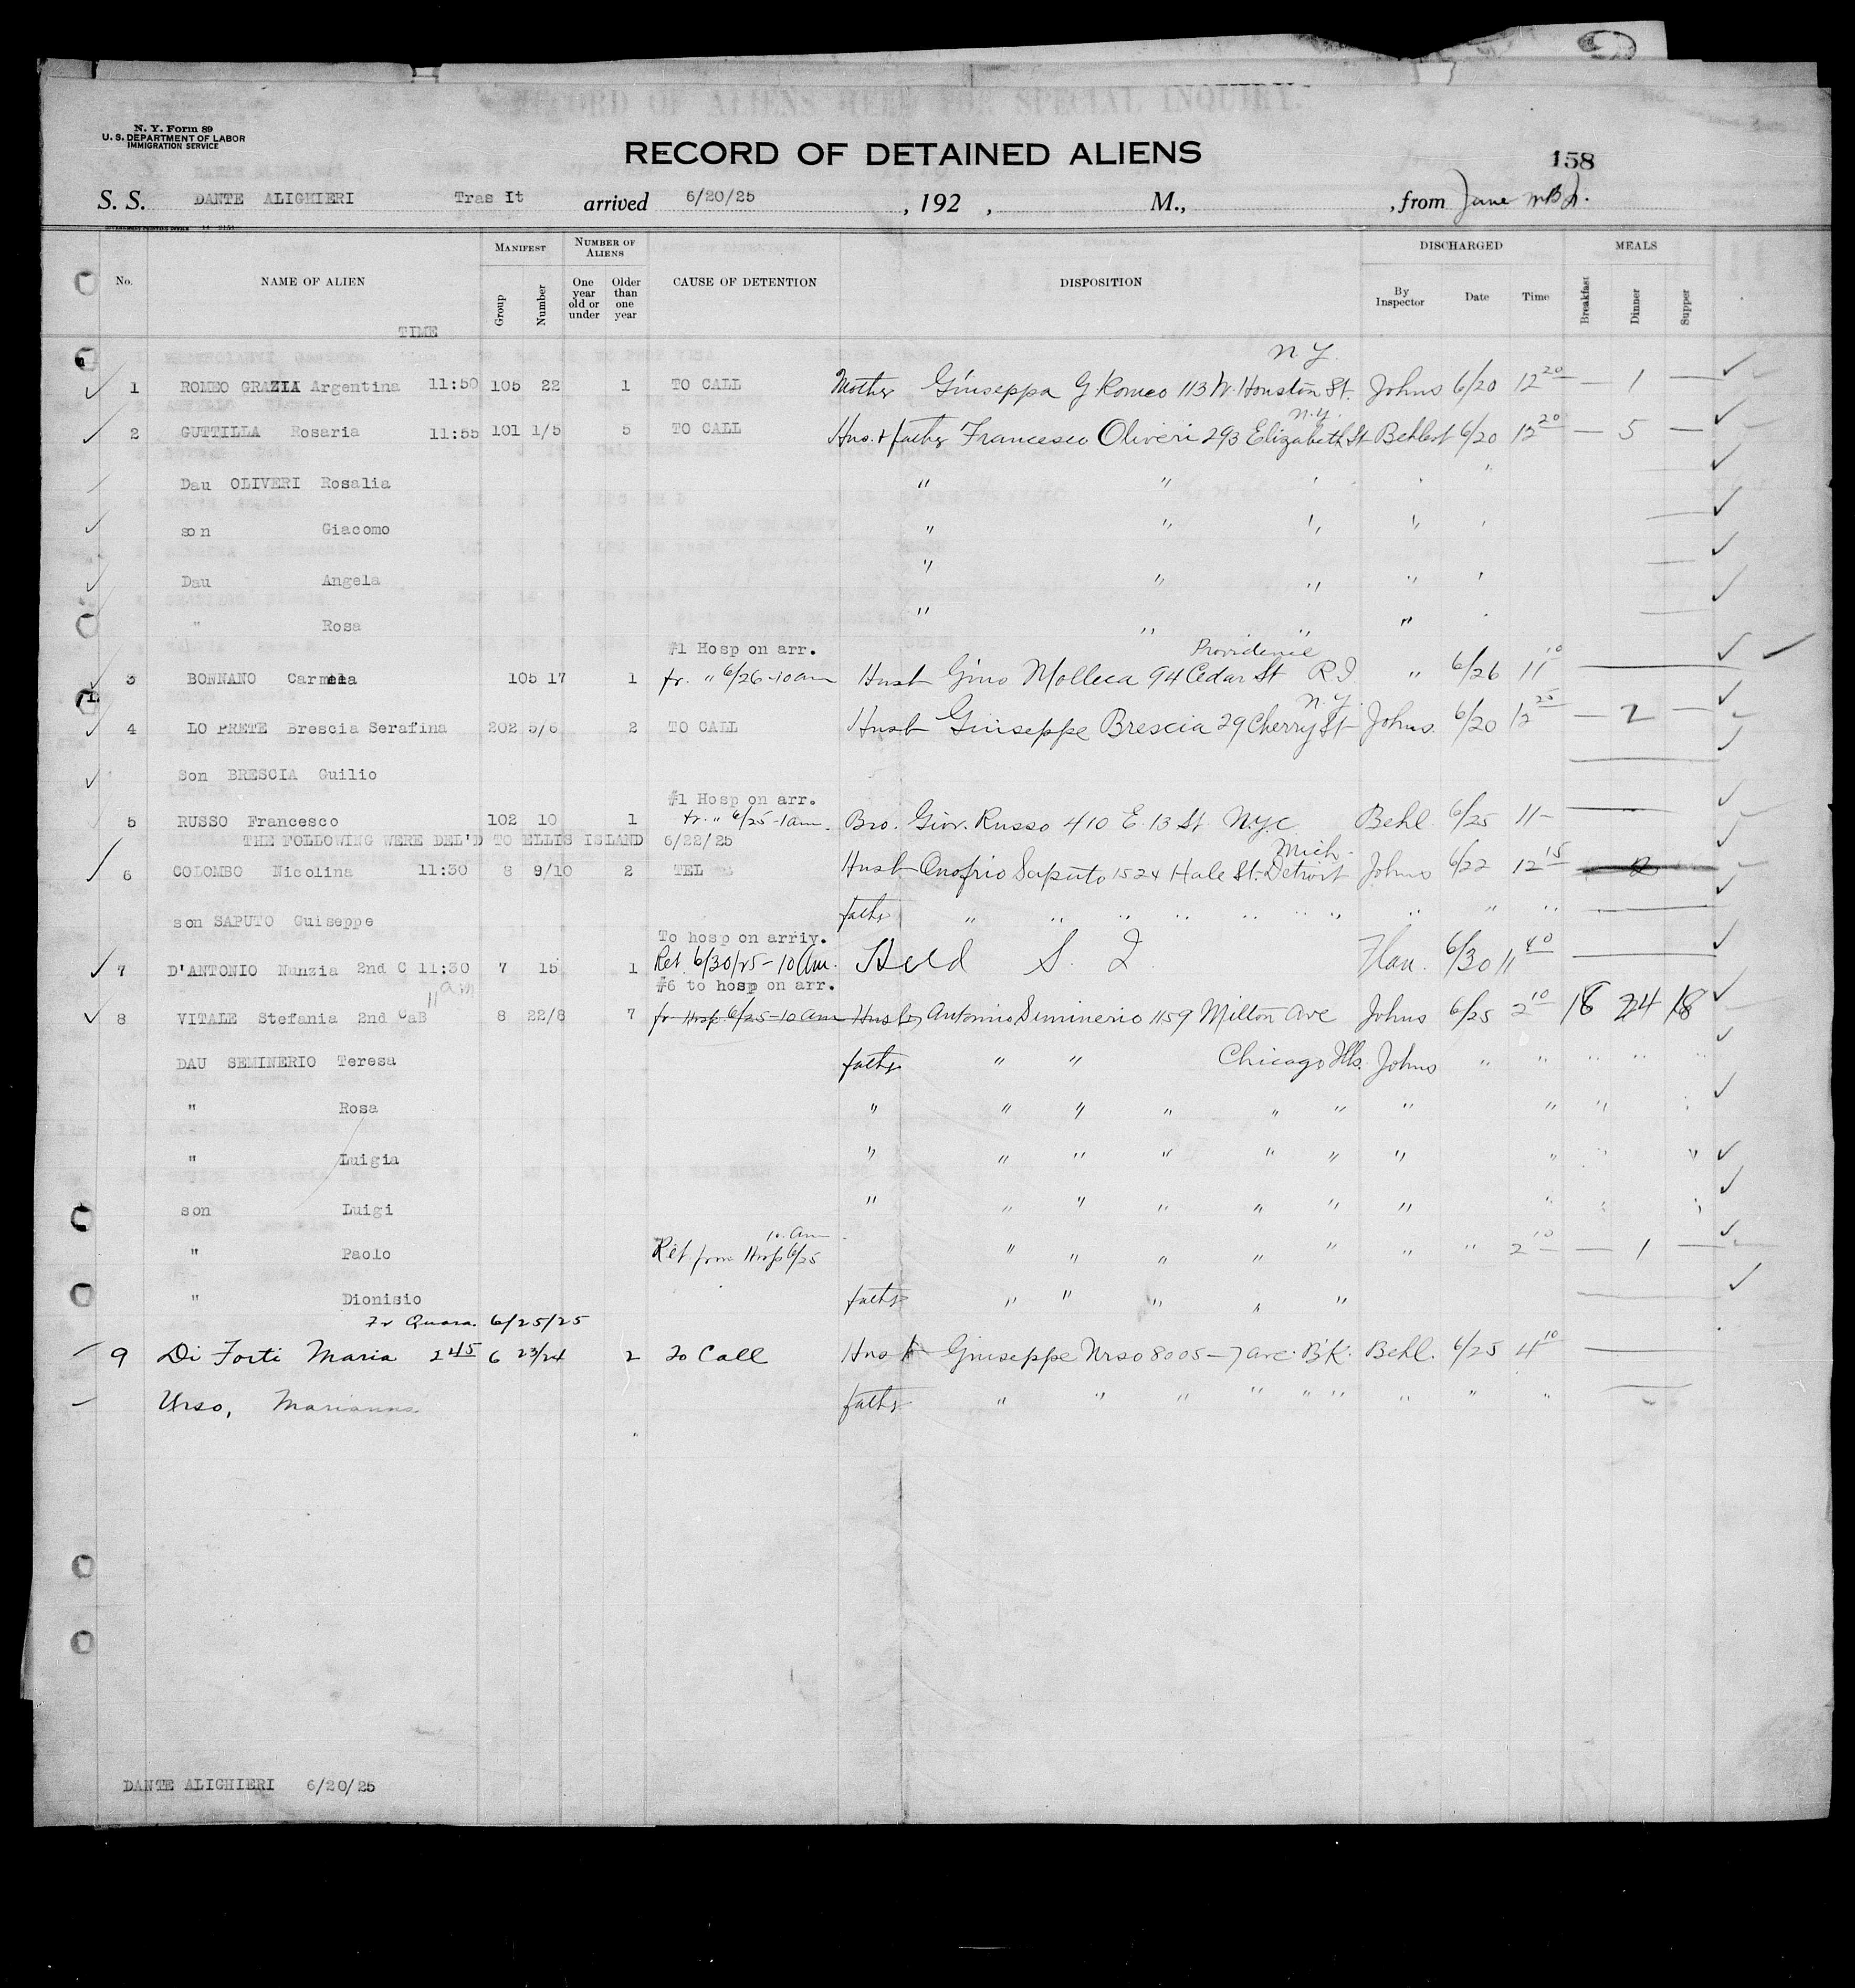 N. Y. Form 89
U. S. DEPARTMENT OF LABOR
IMMIGRATION SERVICE
RECORD OF DETAINED ALIENS
158
S. S. DANTE ALIGHIERI Tras It arrived 6/20/25 , 192 , M., , from
No. NAME OF ALIEN MANIFEST NUMBER OF ALIENS CAUSE OF DETENTION DISPOSITION DISCHARGED MEALS
Group Number One year old or under Older than one year By Inspector Date Time Breakfast Dinner Supper
TIME
N.Y.
1 ROMEO GRAZIA Argentina 11:50 105 22 1 TO CALL Mother Giuseppa G. Romeo 113 W. Houston St. Johns 6/20 12 20 — 1 —
N.Y.
2 GUTTILLA Rosaria 11:55 101 1/5 5 TO CALL Hus. + father Francesco Oliveri 293 Elizabeth St Behlert 6/20 12 20 — 5 —
Dau OLIVERI Rosalia " " " " "
son Giacomo " " " " "
Dau Angela " " " " "
" Rosa " " " " "
#1 Hosp on arr. Providence
3 BONNANO Carmela 105 17 1 fr. " 6/26-10am Husb Gino Molleca 94 Cedar St R I " 6/26 11 10
N.Y.
4 LO PRETE Brescia Serafina 202 5/6 2 TO CALL Husb Giuseppe Brescia 29 Cherry St Johns 6/20 12 25 — 2 —
Son BRESCIA Guilio
#1 Hosp on arr.
5 RUSSO Francesco 102 10 1 fr. " 6/25-1am. Bro. Giov. Russo 410 E. 13 St. N.Y.C Behl 6/25 11-
THE FOLLOWING WERE DEL'D TO ELLIS ISLAND 6/22/25
Mich.
6 COLOMBO Nicolina 11:30 8 9/10 2 TEL Husb Onofrio Saputo 1524 Hale St. Detroit Johns 6/22 12 15 2
son SAPUTO Guiseppe father " " " " " " " " " "
To hosp on arriv.
7 D'ANTONIO Nunzia 2nd C 11:30 7 15 1 Ret. 6/30/25-10 am. Held S. I. Flan. 6/30 11 40
11 am #6 to hosp on arr.
8 VITALE Stefania 2nd CaB 8 22/8 7 fr Hosp. 6/25-10am Husb Antonio Siminerio 1159 Milton Ave Johns 6/25 2 10 18 24 18
DAU SEMINERIO Teresa father " " Chicago Ills. Johns " " " " "
" Rosa " " " " " " " " " "
" Luigia " " " " " " " " " "
son Luigi " " " " " " " " " "
10. am
" Paolo Ret from Hosp 6/25 " " " " " " " 2 10 — 1 —
" Dionisio father " " " " "
Fr Quara. 6/25/25
9 Di Forti Maria 2 45 6 23/24 2 To Call Husb Giuseppe Urso 8005-7 ave. B'k. Behl. 6/25 4 10
Urso, Marianna father " " " " " " " " "
DANTE ALIGHIERI 6/20/25